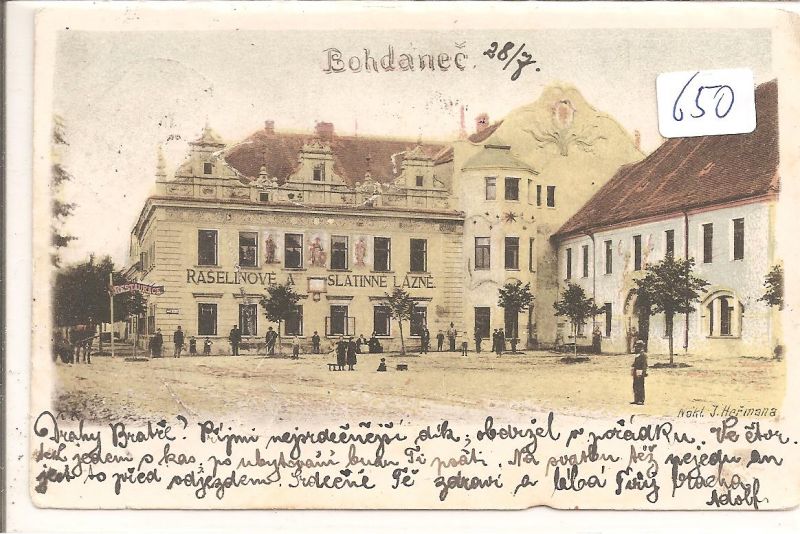 Bohdaneč
28/7.
650
RAŠELINOVÉ A SLATINNÉ LÁZNĚ.
RESTAURACE
Nákl. J. Heřmana
Drahý Bratře! Přijmi nejsrdečnější dík, obdržel v pořádku. Ve čtvr-
jedem s kas, po ubytování budu Ti psáti. Na svatbu též nejedu
jest to před odjezdem. Srdečně Tě zdraví a líbá Tvůj
Adolf.